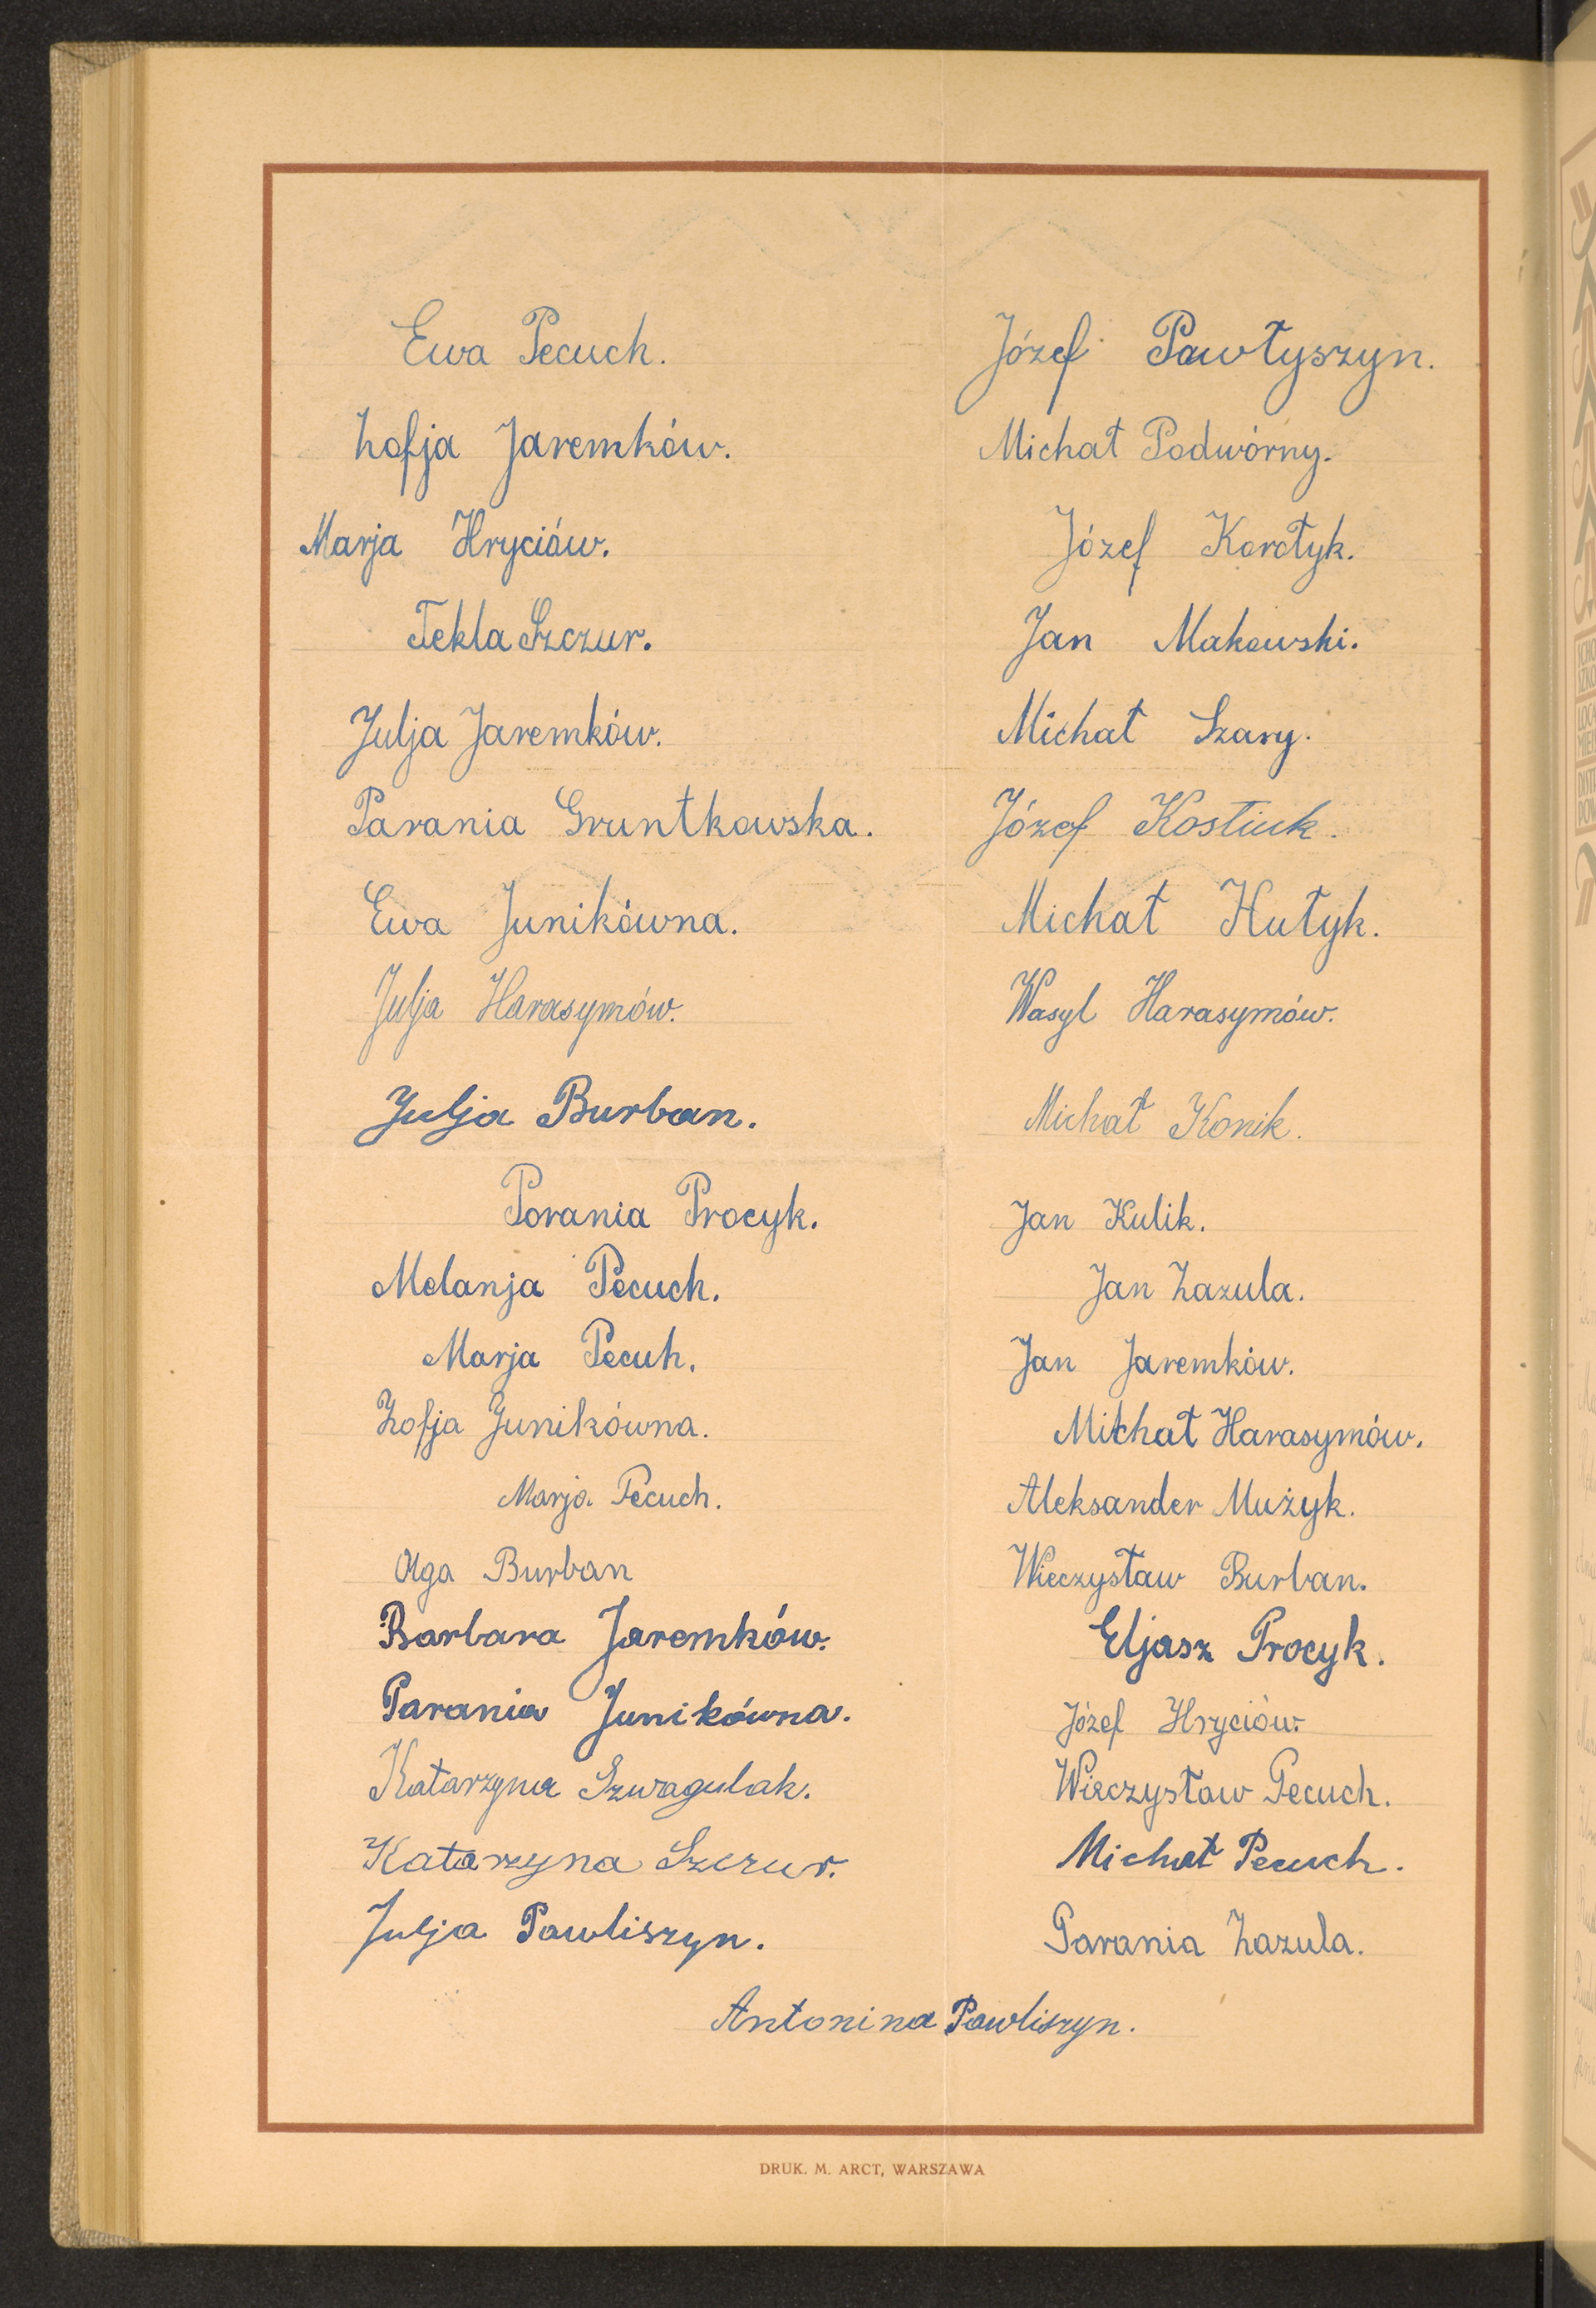 Ewa Pecuch.
Zofja Jaremków.
Marja Hryciów.
Tekla Szczur.
Julja Jaremków.
Parania Gruntkowska.
Ewa Junikówna.
Julja Harasymów.
Julja Burban.
Porania Procyk.
Melanja Pecuch.
Marja Pecuh.
Zofja Junikówna.
Marja Pecuch.
Olga Burban
Barbara Jaremków.
Parania Junikówna.
Katarzyna Szwagulak.
Katarzyna Szczur.
Julja Pawliszyn.
Józef Pawłyszyn.
Michał Podwórny.
Józef Korołyk.
Jan Makowski.
Michał Szary.
Józef Kostiuk.
Michał Hułyk.
Wasyl Harasymów.
Michał Konik.
Jan Kulik.
Jan Zazula.
Jan Jaremków.
Michał Harasymów.
Aleksander Mużyk.
Wieczysław Burban.
Eljasz Procyk.
Józef Hryciów.
Wieczysław Pecuch.
Michał Pecuch.
Parania Zazula.
Antonina Pawliszyn.
DRUK. M. ARCT, WARSZAWA